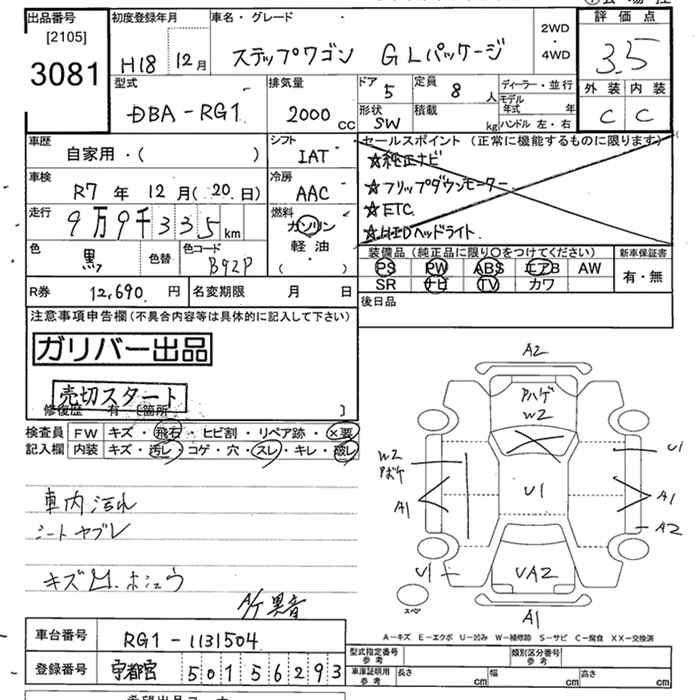 出品番号 [2105] 3081
初度登録年月 H18 12月
車名・グレード ステップワゴン GLパッケージ
2WD・4WD
評価点 3.5
型式 DBA-RG1
排気量 2000 cc
ドア 5 定員 8 人
形状 SW 積載 kg
ディーラー・並行
モデル年式 年
ハンドル 左・右
外装 C 内装 C
車歴 自家用・( )
シフト IAT
セールスポイント (正常に機能するものに限ります)
☆純正ナビ
☆フリップダウンモーター
☆ETC
☆HIDヘッドライト
車検 R7年12月(20日)
冷房 AAC
走行 9万9千335km
燃料 ガソリン 軽油 ( )
色 黒 色替 色コード B92P
装備品 (純正品に限り○をつけてください) 新車保証書
PS PW ABS エアB AW 有・無
SR ナビ TV カワ
R券 12,690円 名変期限 月 日
後日品
注意事項申告欄(不具合内容等は具体的に記入して下さい)
ガリバー出品
売切スタート
修復歴 有 [箇所 ]
検査員 FW キズ・飛石・ヒビ割・リペア跡・×要
記入欄 内装 キズ・汚レ・コゲ・穴・スレ・キレ・破レ
車内汚れ
シートヤブレ
キズ
A2
Aハゲ
W2
U1
W2
Aボケ
A1
U1
A1
A2
U1
UA2
スペア
A1
異音
A-キズ E-エクボ U-凹み W-補修跡 S-サビ C-腐食 XX-交換済
車台番号 RG1-1131504
型式指定番号 参考 類別区分番号 参考
登録番号 宇都宮 501 5 6293
車庫証明用 参考 長さ cm 幅 cm 高さ cm